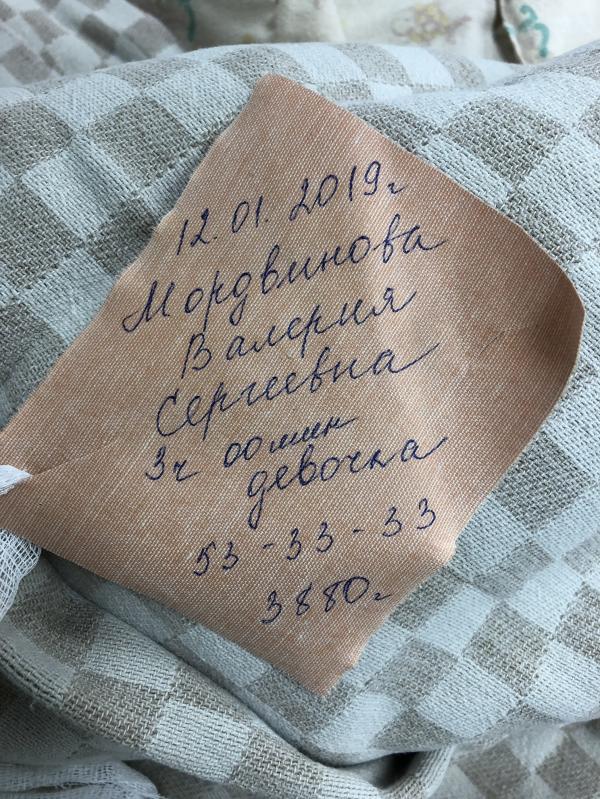 12.01.2019г
Мордвинова
Валерия
Сергеевна
3ч 00мин
девочка
53-33-33
3880г